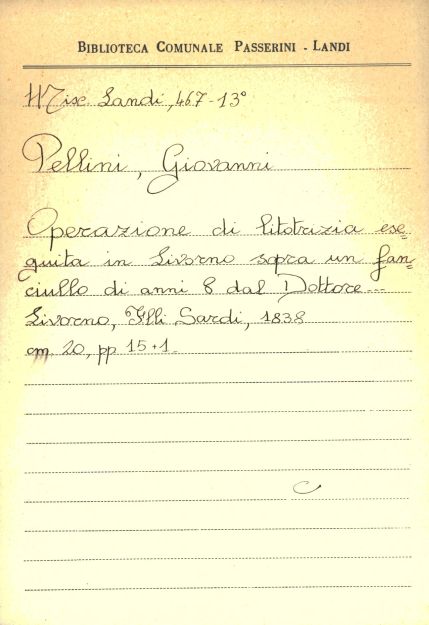 BIBLIOTECA COMUNALE PASSERINI - LANDI
Misc. Landi, 467-13°
Pellini, Giovanni
Operazione di litotrizia ese=
guita in Livorno sopra un fan=
ciullo di anni 8 dal Dottore...
Livorno, Flli Sardi, 1838
cm. 20, pp 15+1.